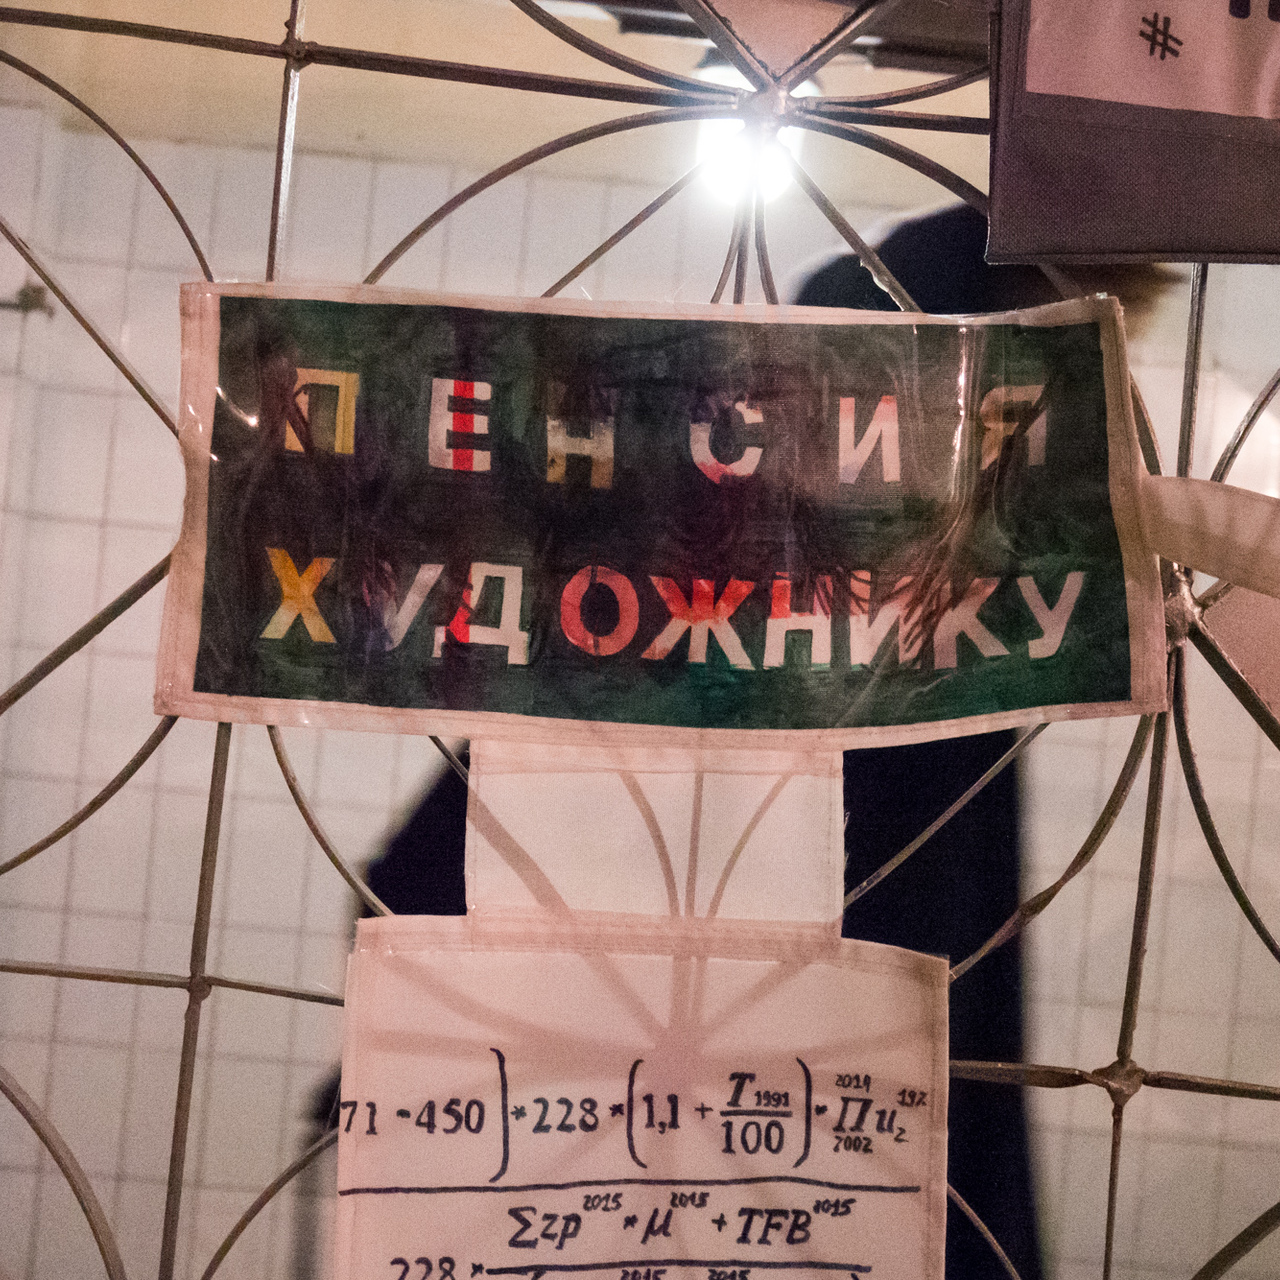 #
ПЕНСИЯ
ХУДОЖНИКУ
71 - 450) * 228 * (1,1 + T 1991 / 100) * 2014 П 2002 и 2 19%
Σzp 2015 * μ 2015 + TFB 2015
228 *
2015 2015